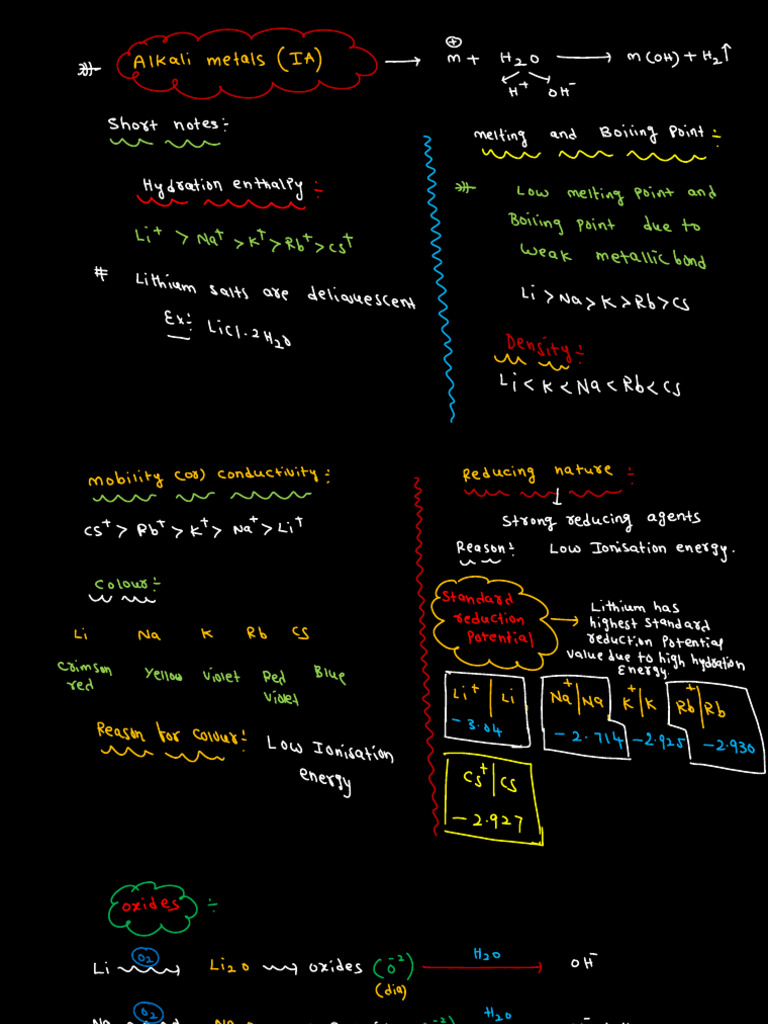 Alkali metals (IA) → m⊕ + H2O → m(OH) + H2↑
H+ OH-
Short notes:-
Hydration enthalpy:-
Li+ > Na+ > K+ > Rb+ > Cs+
# Lithium salts are deliquescent
Ex: LiCl.2H2O
melting and Boiling Point:-
Low melting point and
Boiling point due to
weak metallic bond
Li > Na > K > Rb > Cs
Density:-
Li < K < Na < Rb < Cs
mobility (or) conductivity:-
Cs+ > Rb+ > K+ > Na+ > Li+
Colour:-
Li Na K Rb Cs
Crimson red Yellow Violet Red violet Blue
Reason for colour:- Low Ionisation
energy
Reducing nature:-
Strong reducing agents
Reason: Low Ionisation energy.
Standard
reduction
Potential
→ Lithium has
highest standard
reduction Potential
value due to high hydration
Energy.
Li+|Li Na+|Na K+|K Rb+|Rb
-3.04 -2.714 -2.925 -2.930
Cs+|Cs
-2.927
oxides:-
Li O2 → Li2O → oxides (O-2) H2O → OH-
(dia)
O2 H2O